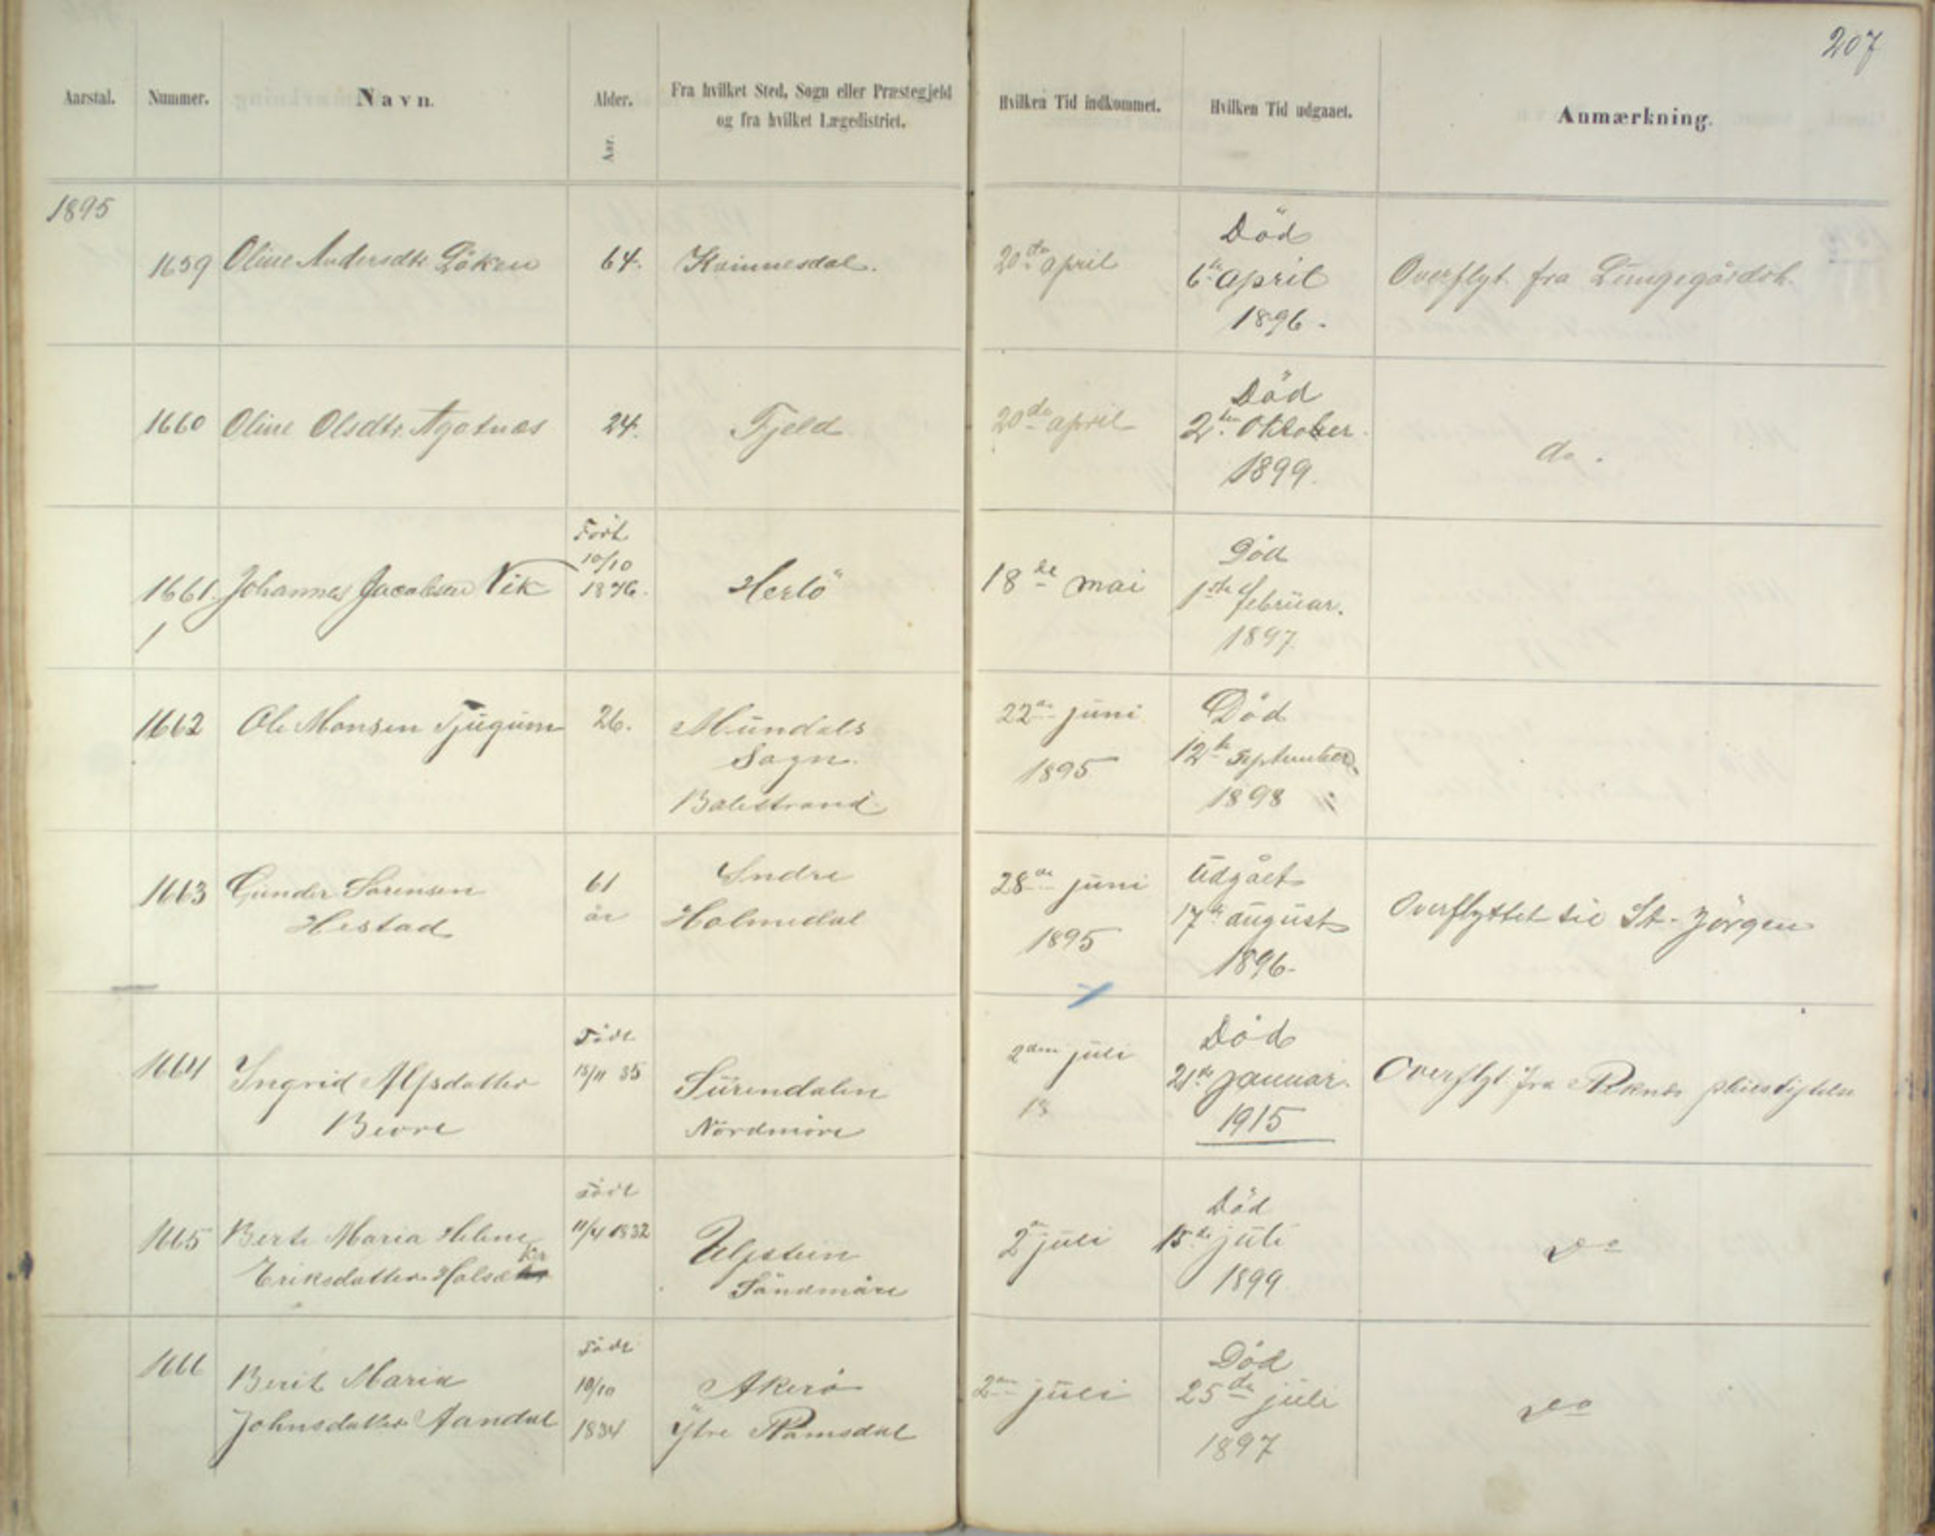 207
Aarstal. Nummer. Navn. Alder. Fra hvilket Sted, Sogn eller Præstegjeld Hvilken Tid indkommet. Hvilken Tid udgaaet. Anmærkning.
og fra hvilket Lægedistrict.
Aar.
1895
1659 Oline Andersdtr Löken 64. Kvinnesdal. 20de april Död
6te april
1896. Overflyt. fra Lungegårdsh.
1660 Oline Olsdtr. Agotnæs 24. Fjeld 20de april Död
2den Oktober
1899. do.
1661. Johannes Jacobsen Vik Födt
10/10
1876. Herlö 18de mai Död
1ste februar.
1897.
1662 Ole Monsen Tjugum 26. Mundals
Sogn.
Balestrand 22de juni
1895 Död
12te september
1898
1663 Gunder Sorensen
Hestad 61
år Indre
Holmedal 28de juni
1895 Udgået
17de august
1896. Overflyttet til St. Jörgen
1664 Ingrid Alfsdatter
Bevre Födt
15/11 35 Surendalen
Nordmöre 2den juli
18 Död
21de januar.
1915 Overflyt. fra Reknes pleiestiftelse
1665 Berte Maria Heline
Eriksdatter Födt
11/4 1832 Ulfstein
Söndmöre 2de juli Död
15de juli
1899. Do
1666 Berit Maria
Johnsdatter Aandal Födt
10/10
1834 Akerö
Ytre Ramsdal 2den juli Död
25de juli
1897 Do